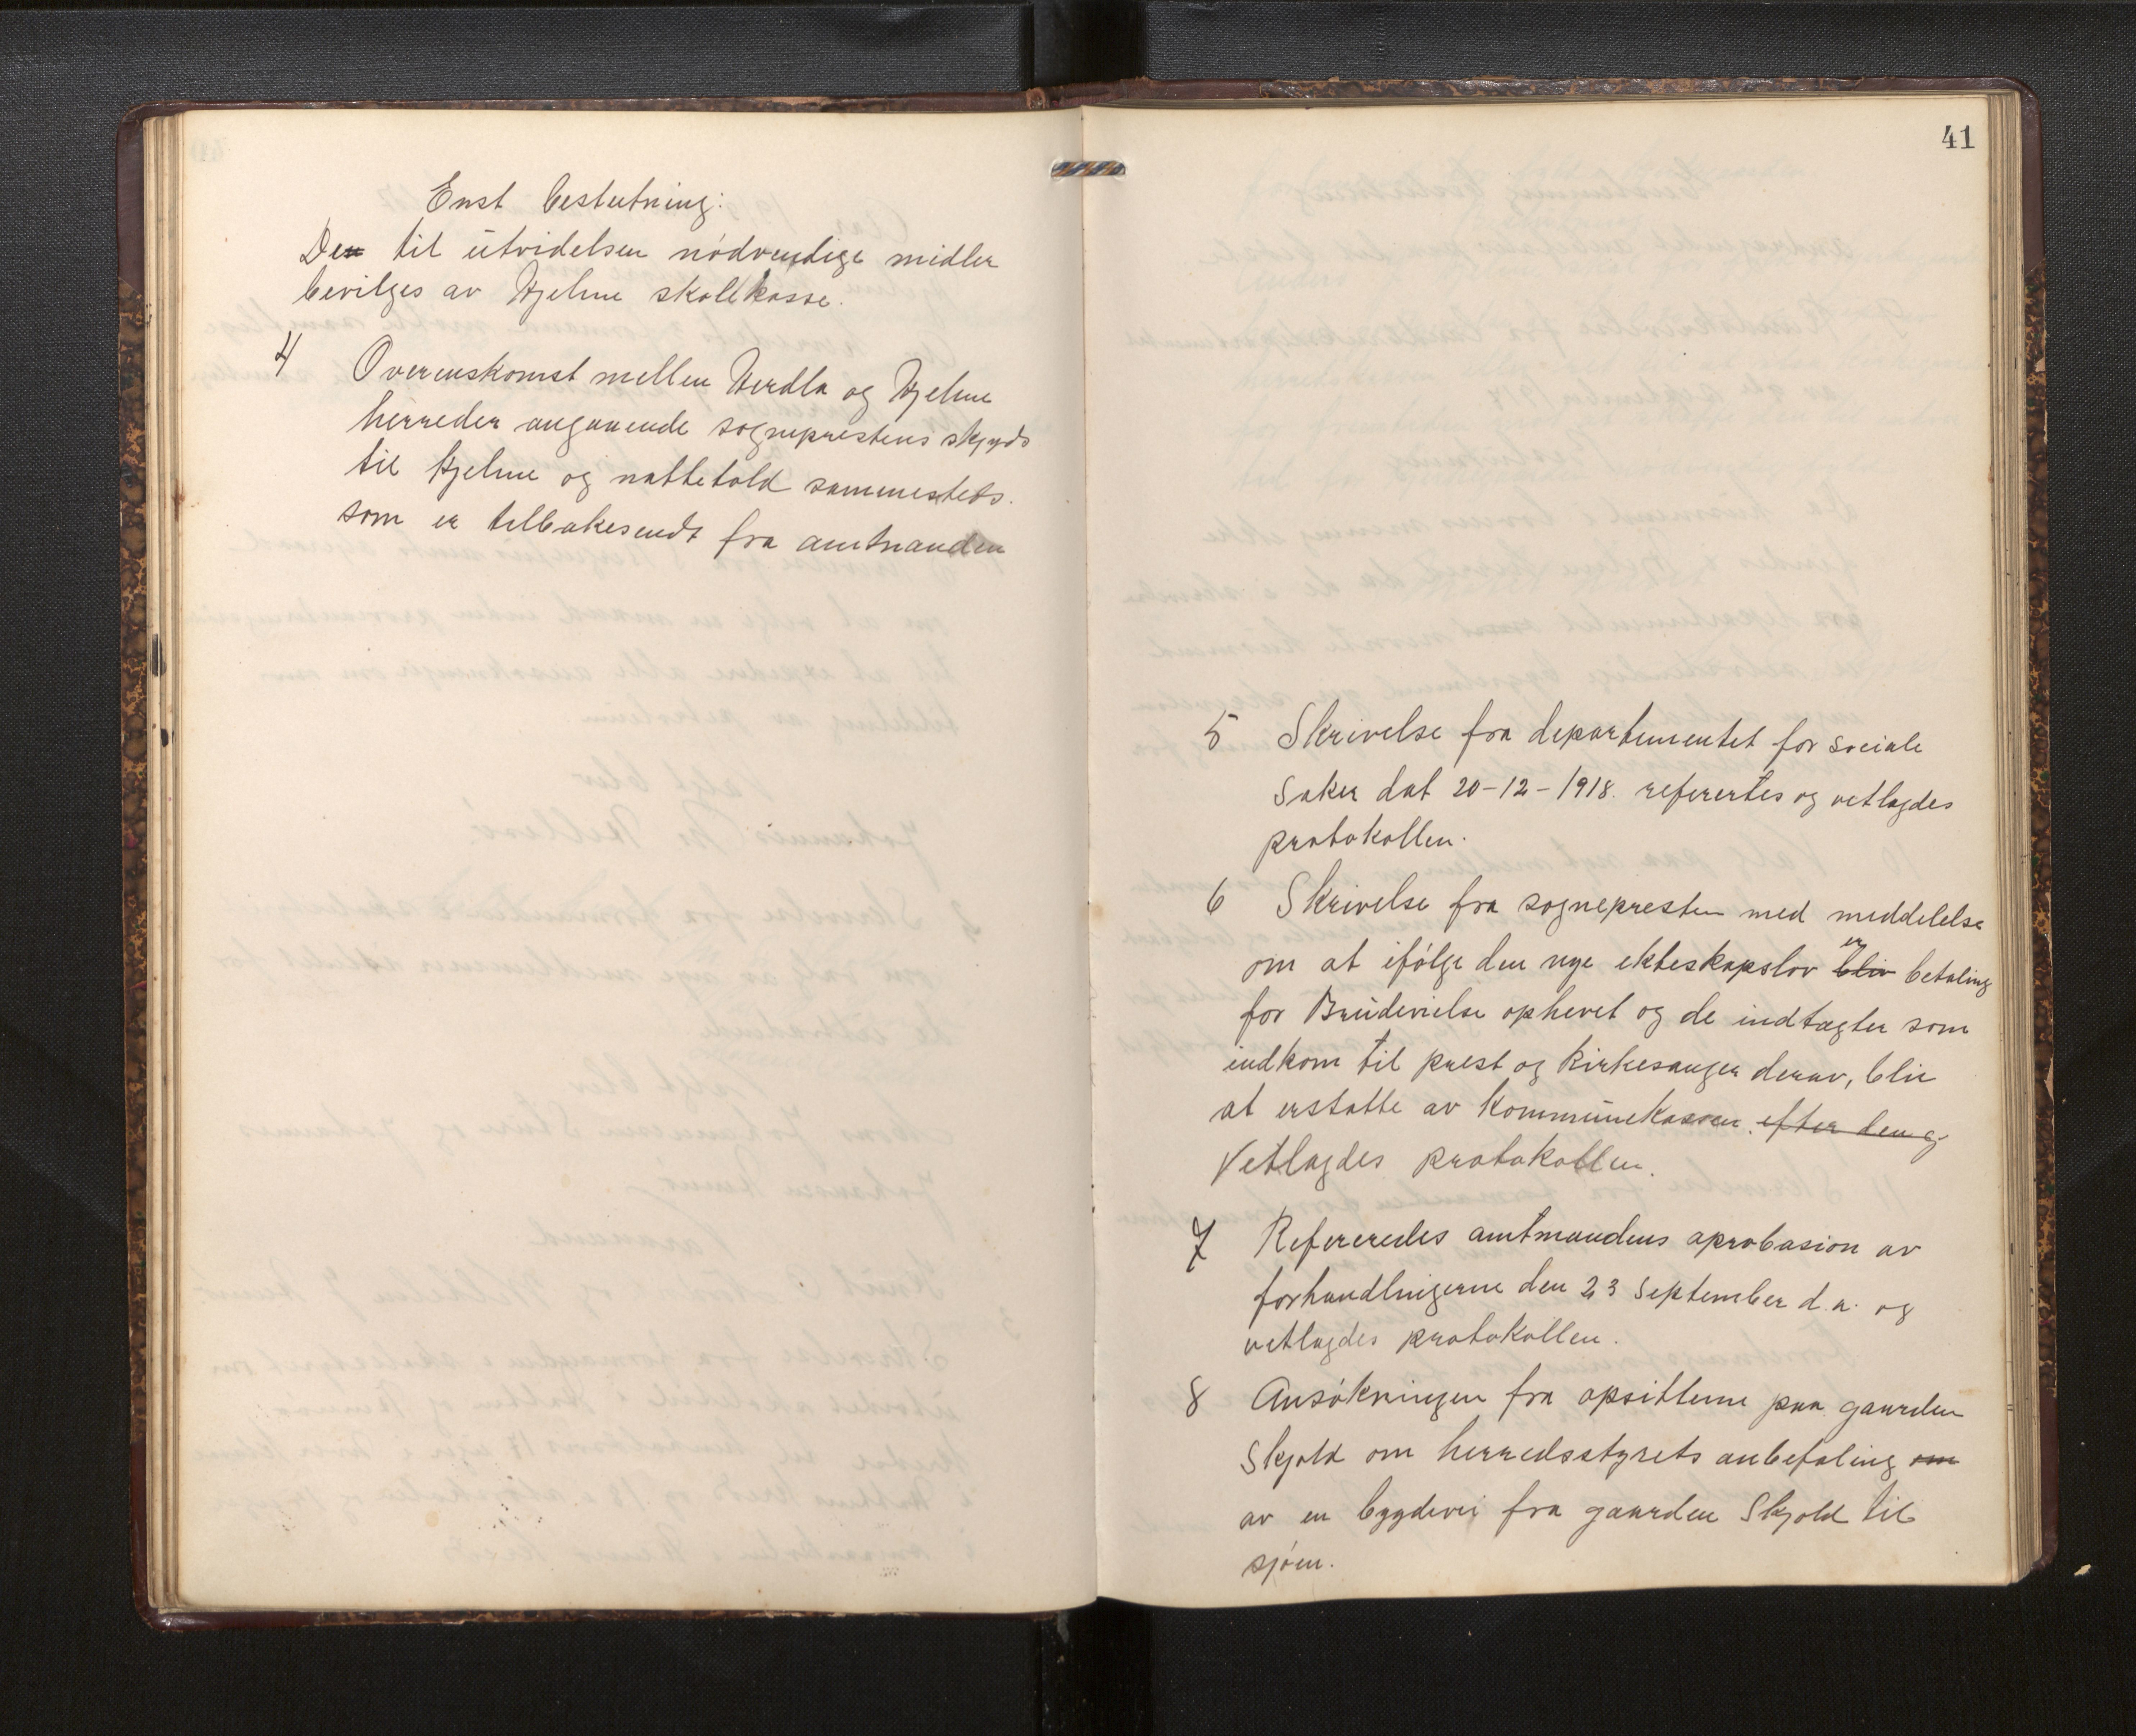 Enst beslutning:
De til utvidelsen nödvendige midler
bevilges av Hjelme skolekasse.
4 Overenskomst mellem Herdla og Hjelme
herreder angaaende sogneprestens skyds
til Hjelme og nattehold sammesteds.
som er tilbakesendt fra amtmanden
41
5 Skrivelse fra departementet for sociale
saker dat 20-12-1918. referertes og vetlagdes
protokollen.
6 Skrivelse fra sognepresten med meddelelse
om at ifölge den nye ekteskapslov blir er betaling
for Brudevielse ophevet og de indtægter som
indkom til prest og Kirkesanger derav, blir
at erstatte av Kommunekassen. efter den g
Vetlagdes protokollen.
7 Refereredes amtmandens aprobasion av
forhandlingerne den 23 September d.a. og
vetlagdes protokollen.
8 Ansökningen fra opsitterne paa gaarden
Skjold om herredsstyrets anbefaling om
av en bygdevei fra gaarden Skjold til
sjöen.